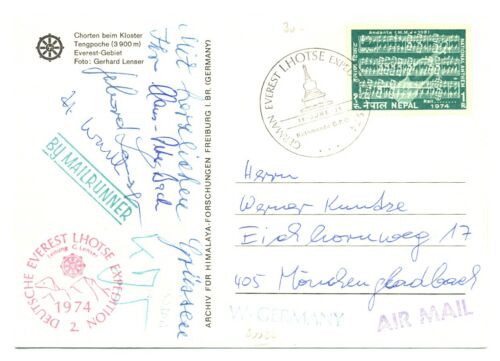 Chorten beim Kloster
Tengpoche (3 900 m)
Everest-Gebiet
Foto: Gerhard Lenser
Mit herzlichen
Grüssen
BY MAILRUNNER
DEUTSCHE EVEREST LHOTSE EXPEDITION
Leitung G. Lenser
1974
2.
ARCHIV FÜR HIMALAYA-FORSCHUNGEN FREIBURG I. BR. (GERMANY)
GERMAN EVEREST LHOTSE
Kathmandu G.P.O.
Andante (M.M. ♩=108)
NATIONAL ANTHEM
नेपाल NEPAL
1974
Herrn
Werner Kuntze
Eichhornweg 17
405 Mönchengladbach
W-GERMANY
AIR MAIL